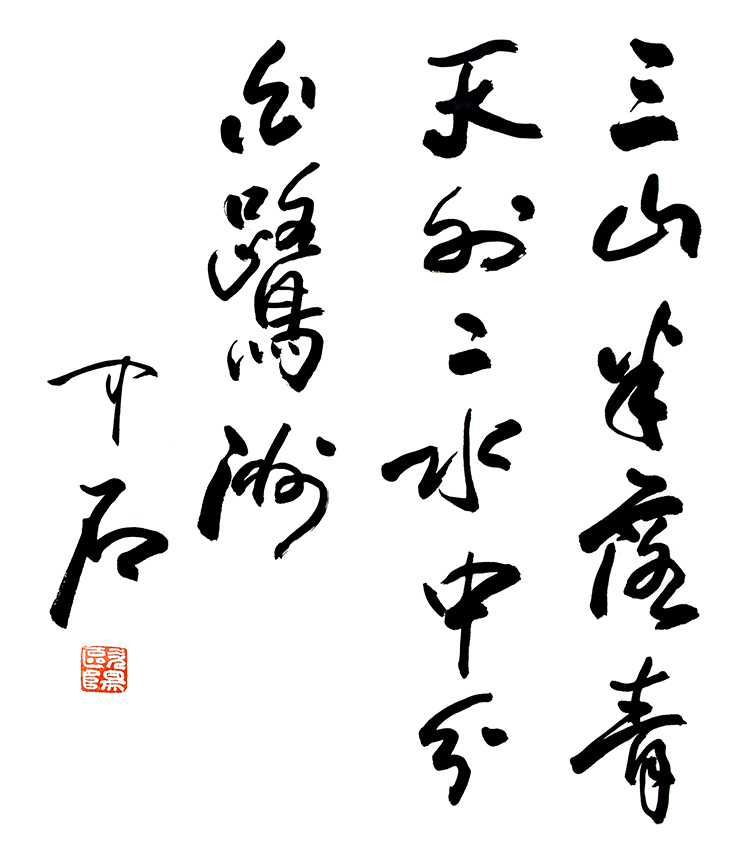 三山半落青
天外二水中分
白鷺洲
中石